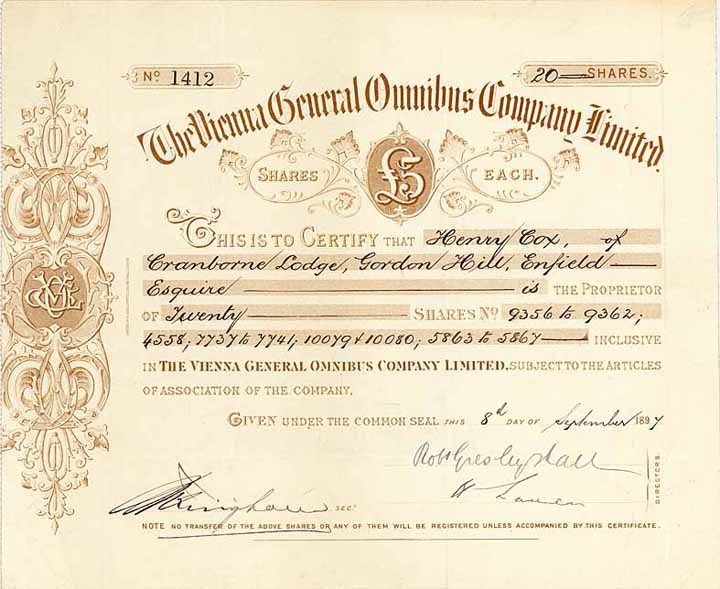 No 1412 20 — SHARES.
The Vienna General Omnibus Company Limited.
SHARES £5 EACH.
THIS IS TO CERTIFY THAT Henry Cox, of
Cranborne Lodge, Gordon Hill, Enfield —
Esquire — is THE PROPRIETOR
OF Twenty — SHARES No 9356 to 9362;
4558; 7737 to 7741; 10079 & 10080; 5863 to 5867 — INCLUSIVE
IN THE VIENNA GENERAL OMNIBUS COMPANY LIMITED, SUBJECT TO THE ARTICLES
OF ASSOCIATION OF THE COMPANY.
GIVEN UNDER THE COMMON SEAL THIS 8th DAY OF September 1897
DIRECTORS.
SECY
NOTE NO TRANSFER OF THE ABOVE SHARES OR ANY OF THEM WILL BE REGISTERED UNLESS ACCOMPANIED BY THIS CERTIFICATE.